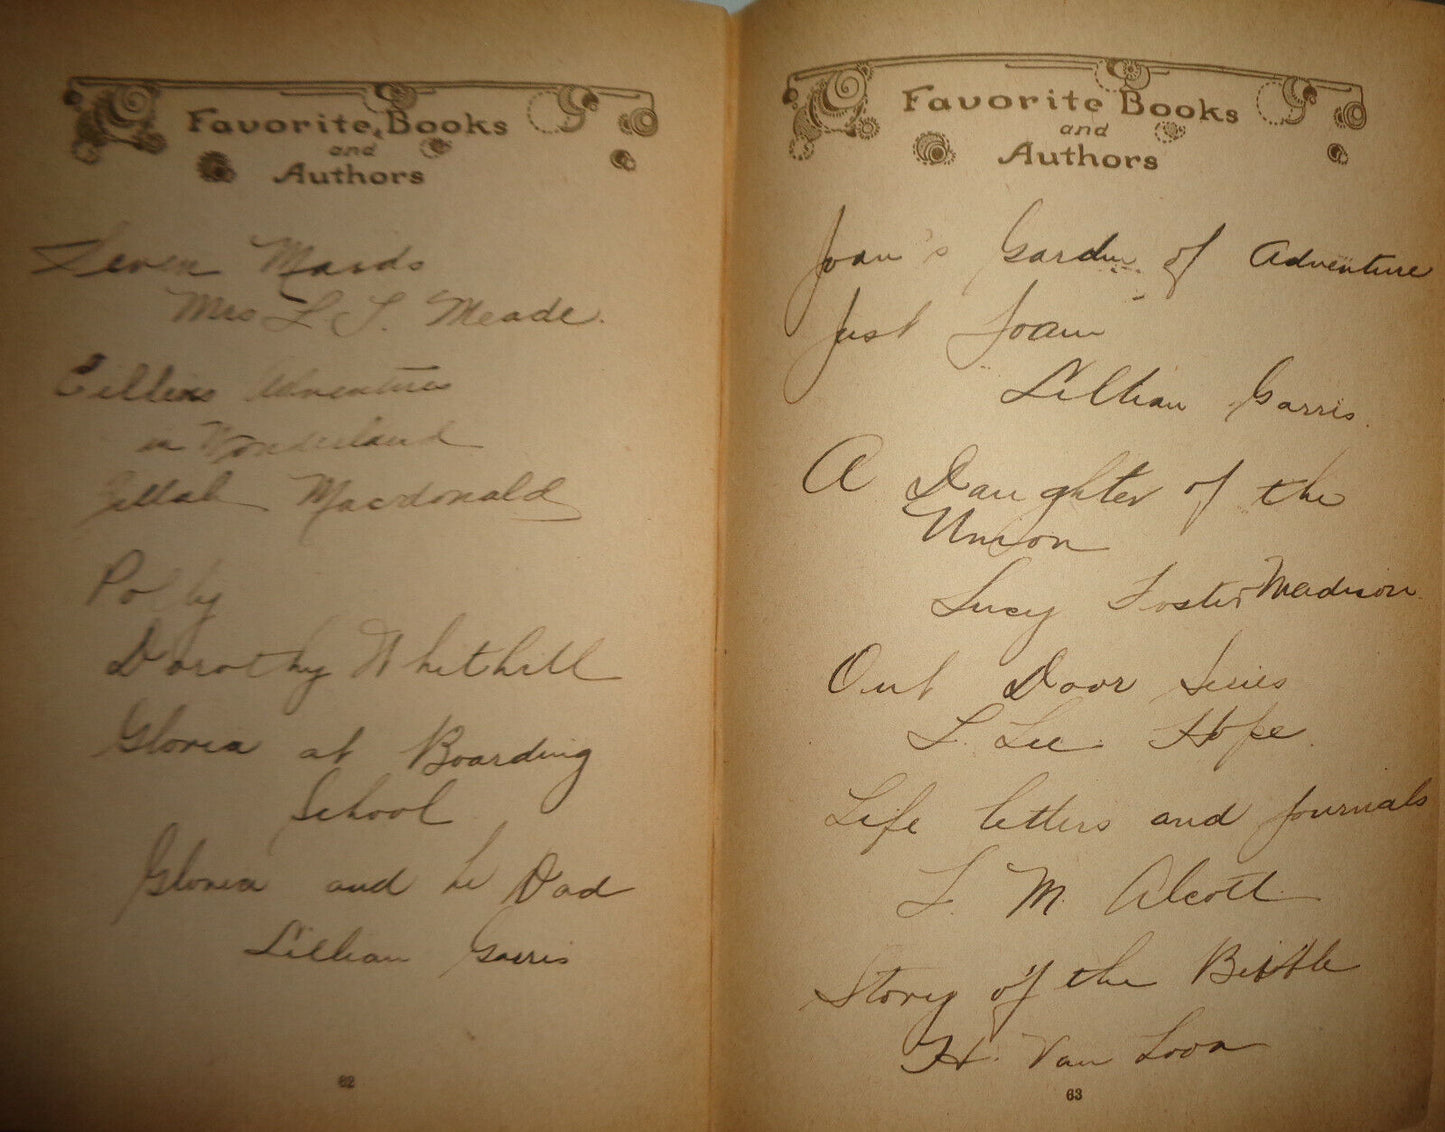 Favorite Books
and
Authors
Seven Maids
Mrs L T. Meade.
Eileens Adventures
in Wonderland
Zillah Macdonald
Polly
Dorothy Whithill
Gloria at Boarding
School
Gloria and he Dad
Lillian Garris
62
Favorite Books
and
Authors
Joan's Garden of Adventure
Just Joan
Lillian Garris.
A Daughter of the
Union
Lucy Foster Madison
Out Door Series
L. Lee Hope.
Life letters and journals
L. M. Alcott
Story of the Bible
H. Van Loon
63